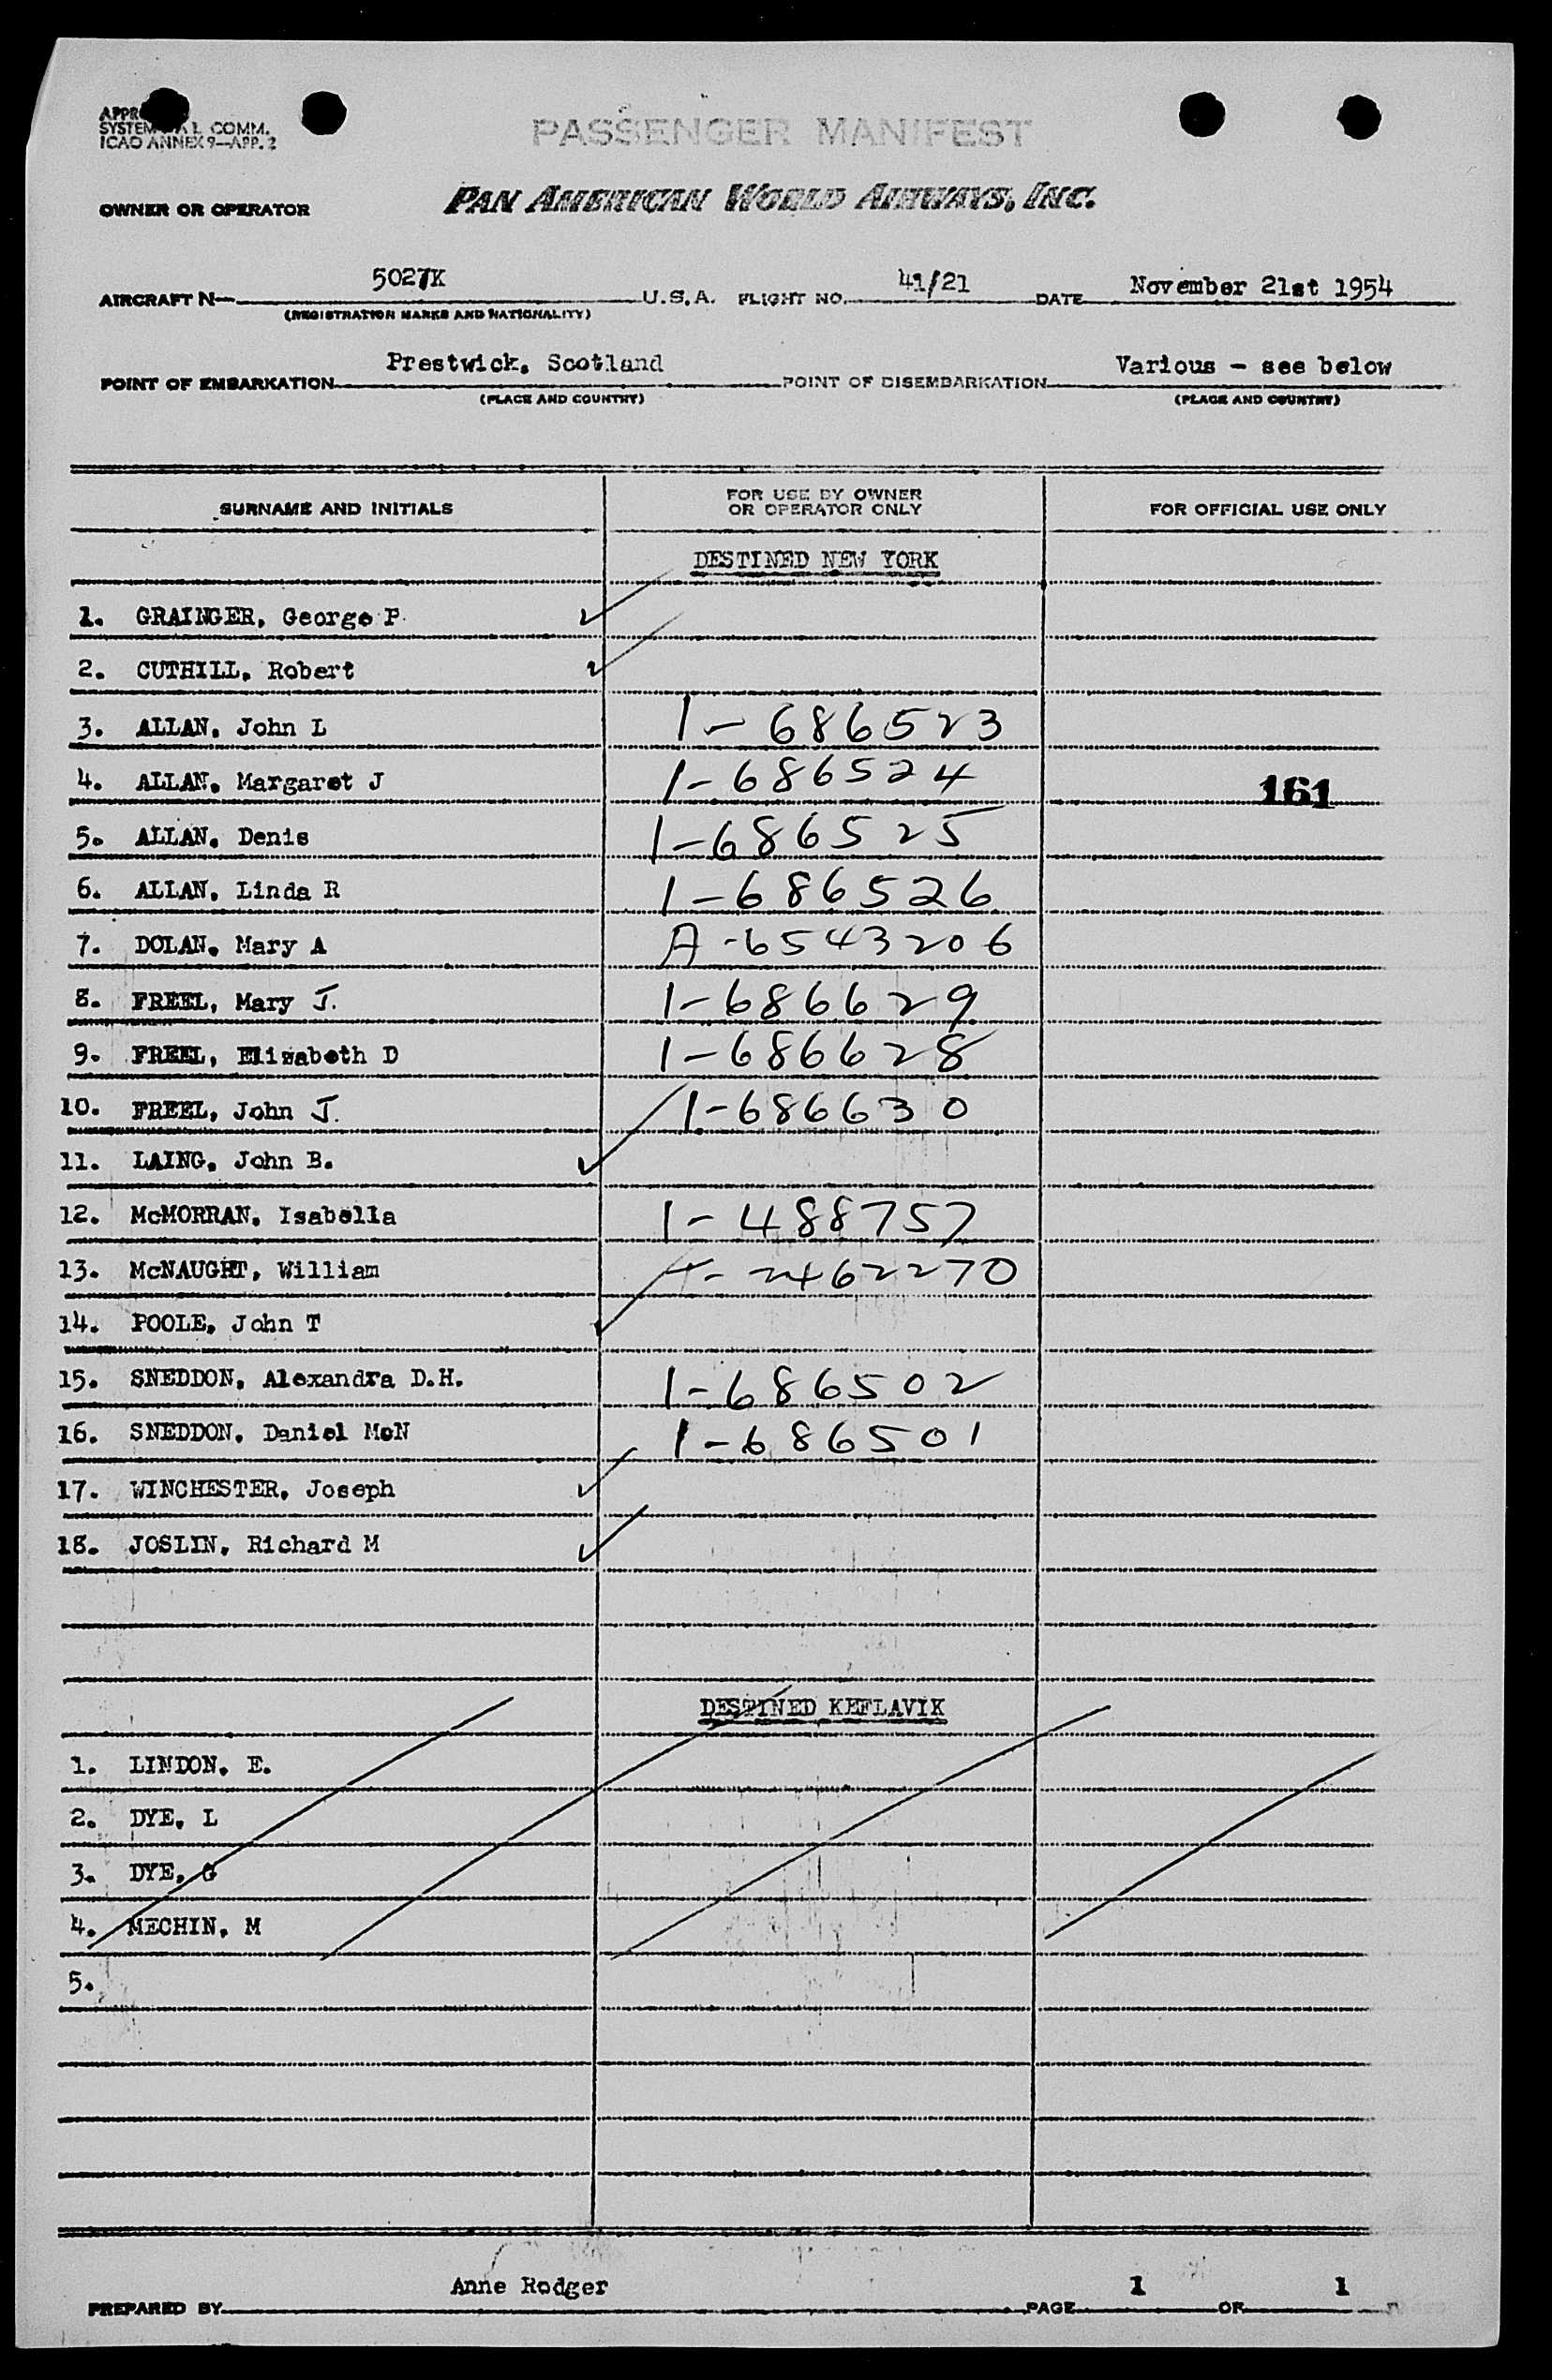 SYSTEM COMM.
ICAO ANNEX 9—APP. 2
PASSENGER MANIFEST
OWNER OR OPERATOR PAN AMERICAN WORLD AIRWAYS, INC.
AIRCRAFT N— 5027K U.S.A. FLIGHT NO. 41/21 DATE November 21st 1954
(REGISTRATION MARKS AND NATIONALITY)
POINT OF EMBARKATION Prestwick, Scotland POINT OF DISEMBARKATION Various - see below
(PLACE AND COUNTRY) (PLACE AND COUNTRY)
SURNAME AND INITIALS FOR USE BY OWNER OR OPERATOR ONLY FOR OFFICIAL USE ONLY
DESTINED NEW YORK
1. GRAINGER, George P.
2. CUTHILL, Robert
3. ALLAN, John L 1-686523
4. ALLAN, Margaret J 1-686524 161
5. ALLAN, Denis 1-686525
6. ALLAN, Linda R 1-686526
7. DOLAN, Mary A A-6543206
8. FREEL, Mary J. 1-686629
9. FREEL, Elizabeth D 1-686628
10. FREEL, John J. 1-686630
11. LAING, John B.
12. McMORRAN, Isabella 1-488757
13. McNAUGHT, William 2462270
14. POOLE, John T
15. SNEDDON, Alexandra D.H. 1-686502
16. SNEDDON, Daniel McN 1-686501
17. WINCHESTER, Joseph
18. JOSLIN, Richard M
DESTINED KEFLAVIK
1. LINDON, E.
2. DYE, L
3. DYE, G
4. MECHIN, M
5.
PREPARED BY Anne Rodger PAGE 1 OF 1